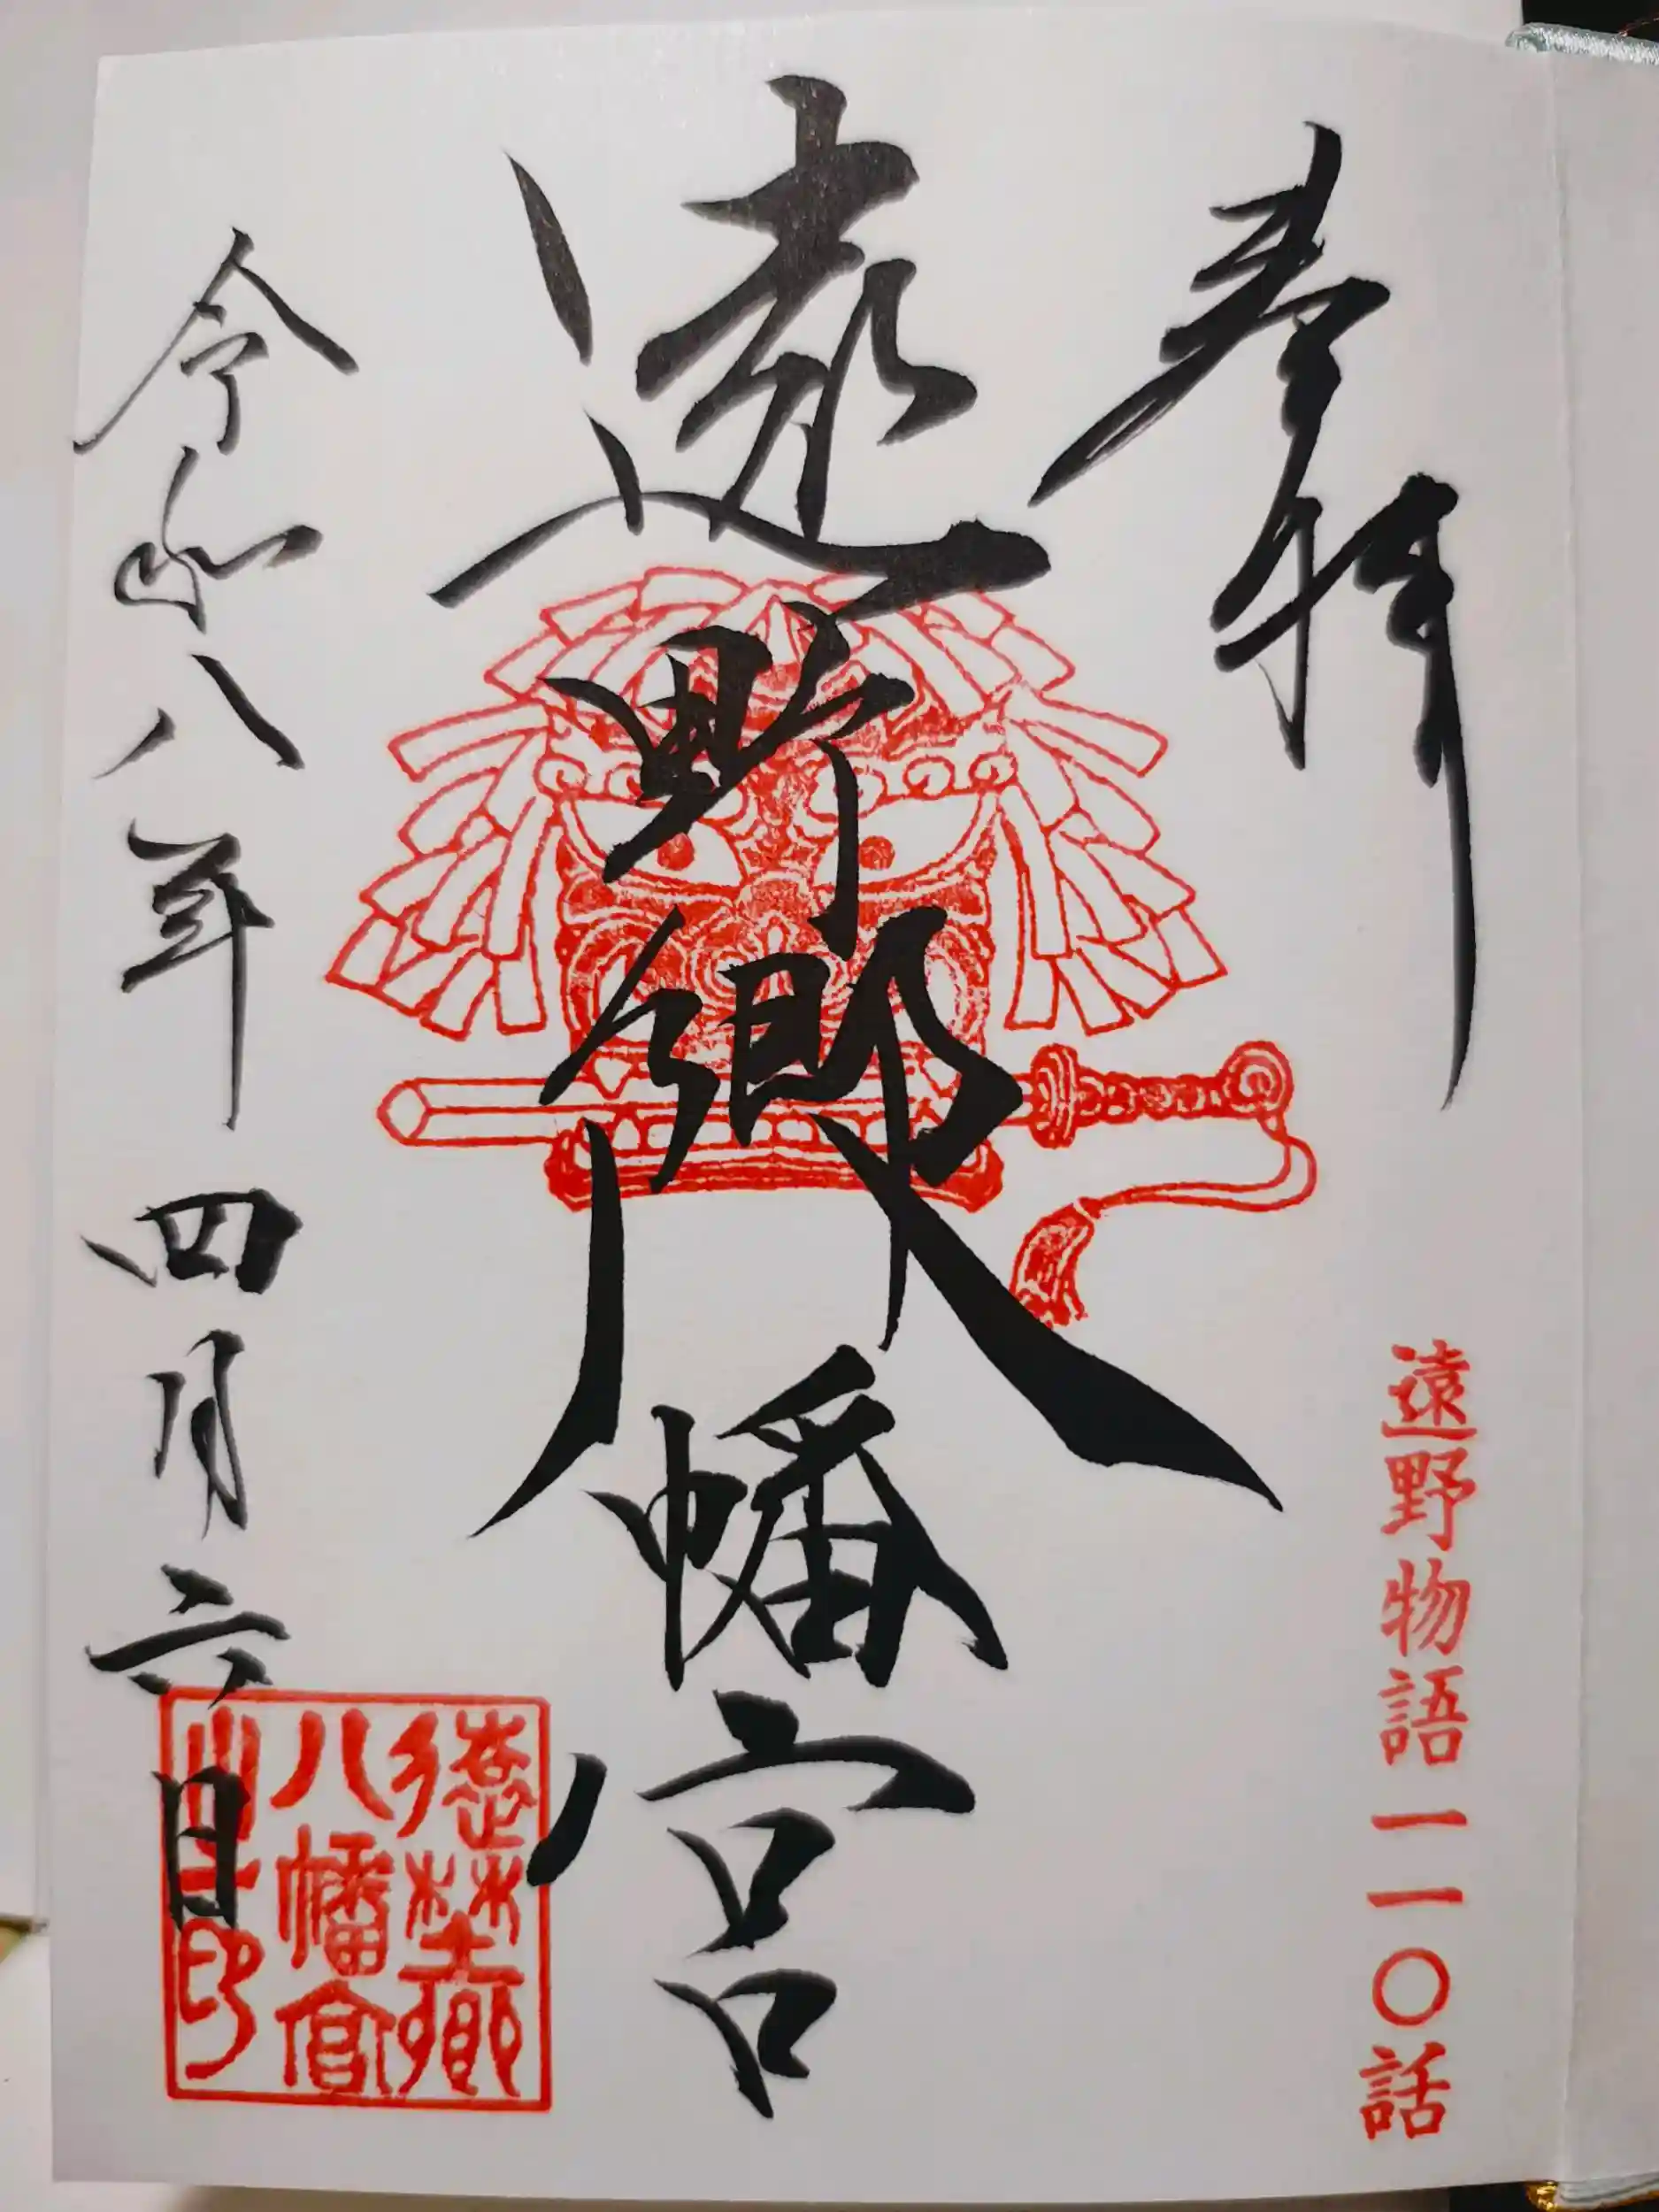 奉拝
遠野物語一一〇話
遠野郷八幡宮
令和八年四月六日
遠野郷
八幡宮
之印